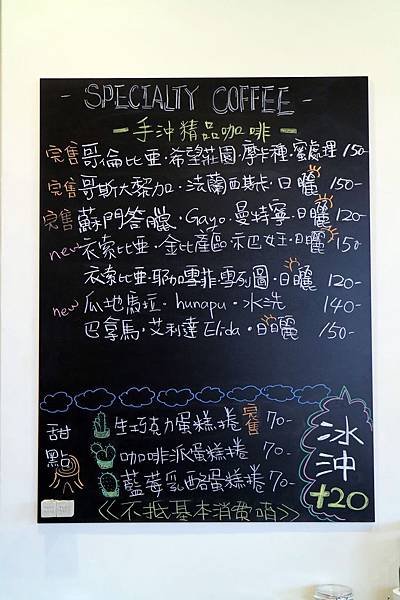 - SPECIALTY COFFEE -
- 手沖精品咖啡 -
完售 哥倫比亞·希望莊園·摩卡種·蜜處理 150-
完售 哥斯大黎加·法蘭西斯卡·日曬 150-
完售 蘇門答臘·Gayo·曼特寧·日曬 120-
new 衣索比亞·金比產區·示巴女王·日曬 150-
衣索比亞·耶加雪菲·雪列圖·日曬 120-
new 瓜地馬拉·hunapu·水洗 140-
巴拿馬·艾利達 Elida·日曬 150-
甜點
生巧克力蛋糕捲 完售 70-
咖啡派蛋糕捲 70-
藍莓乳酪蛋糕捲 70-
<<不抵基本消費唷>>
冰沖
+20